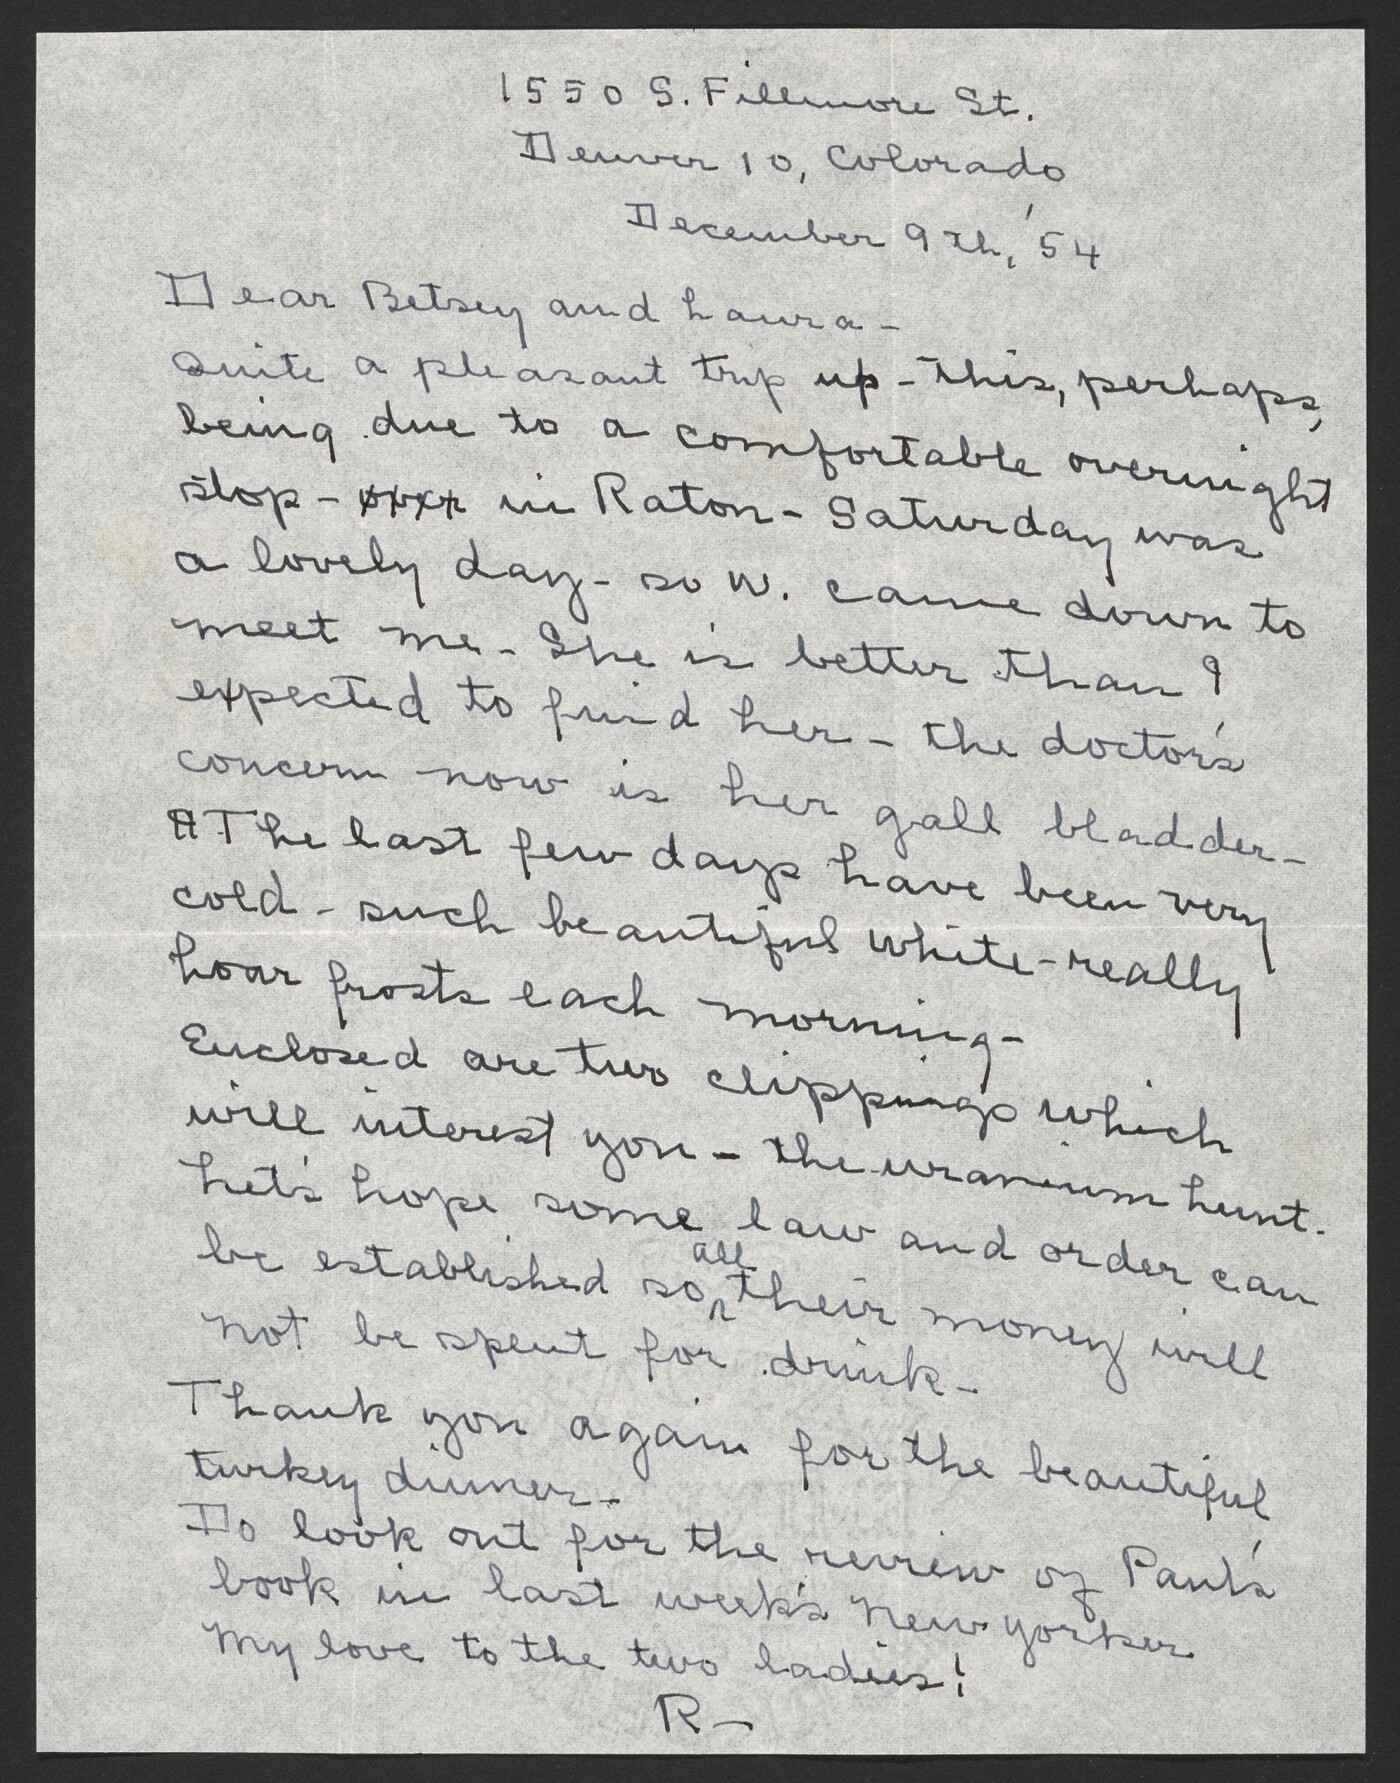 1550 S. Fillmore St.
Denver 10, Colorado
December 9th, '54
Dear Betsey and Laura -
Quite a pleasant trip up - this, perhaps,
being due to a comfortable overnight
stop - in Raton - Saturday was
a lovely day - so W. came down to
meet me - She is better than I
expected to find her - the doctor's
concern now is her gall bladder -
The last few days have been very
cold - such beautiful white - really
hoar frosts each morning -
Enclosed are two clippings which
will interest you - the uranium hunt.
Let's hope some law and order can
be established so all their money will
not be spent for drink -
Thank you again for the beautiful
turkey dinner -
Do look out for the review of Paul's
book in last week's New Yorker
My love to the two ladies!
R -